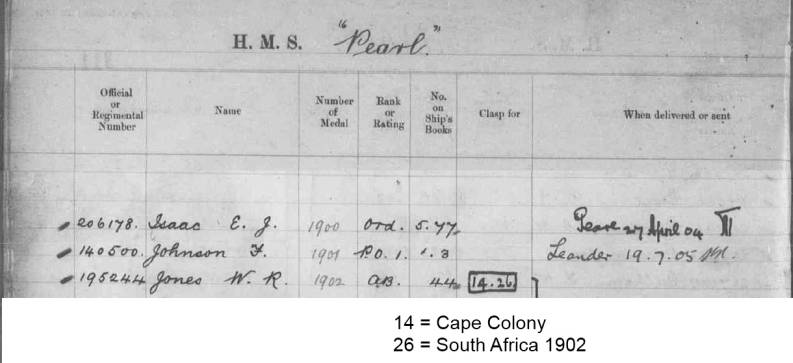 H. M. S. "Pearl."
Official or Regimental Number Name Number of Medal Rank or Rating No. on Ship's Books Clasp for When delivered or sent
206178. Isaac E. J. 1900 Ord. 5.77. 27 April 04
140500. Johnson F. 1901 P.O. 1. 1.3 Leander 19.7.05
195244 Jones W. R. 1902 A.B. 44. 14.26
14 = Cape Colony
26 = South Africa 1902